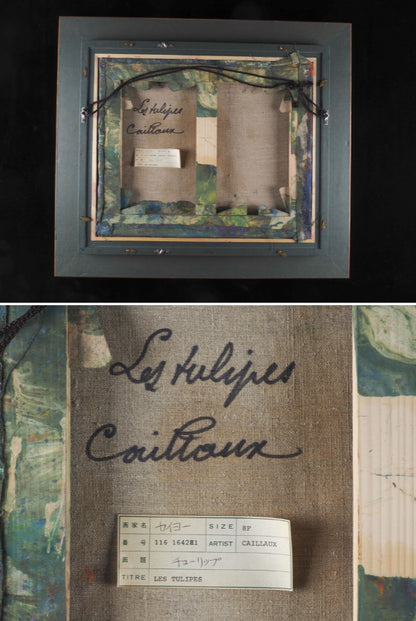 Les tulipes
Caillaux
Les tulipes
Caillaux
画家名 セイヨー SIZE 8F
番号 116 164281 ARTIST CAILLAUX
画題 チューリップ
TITRE LES TULIPES